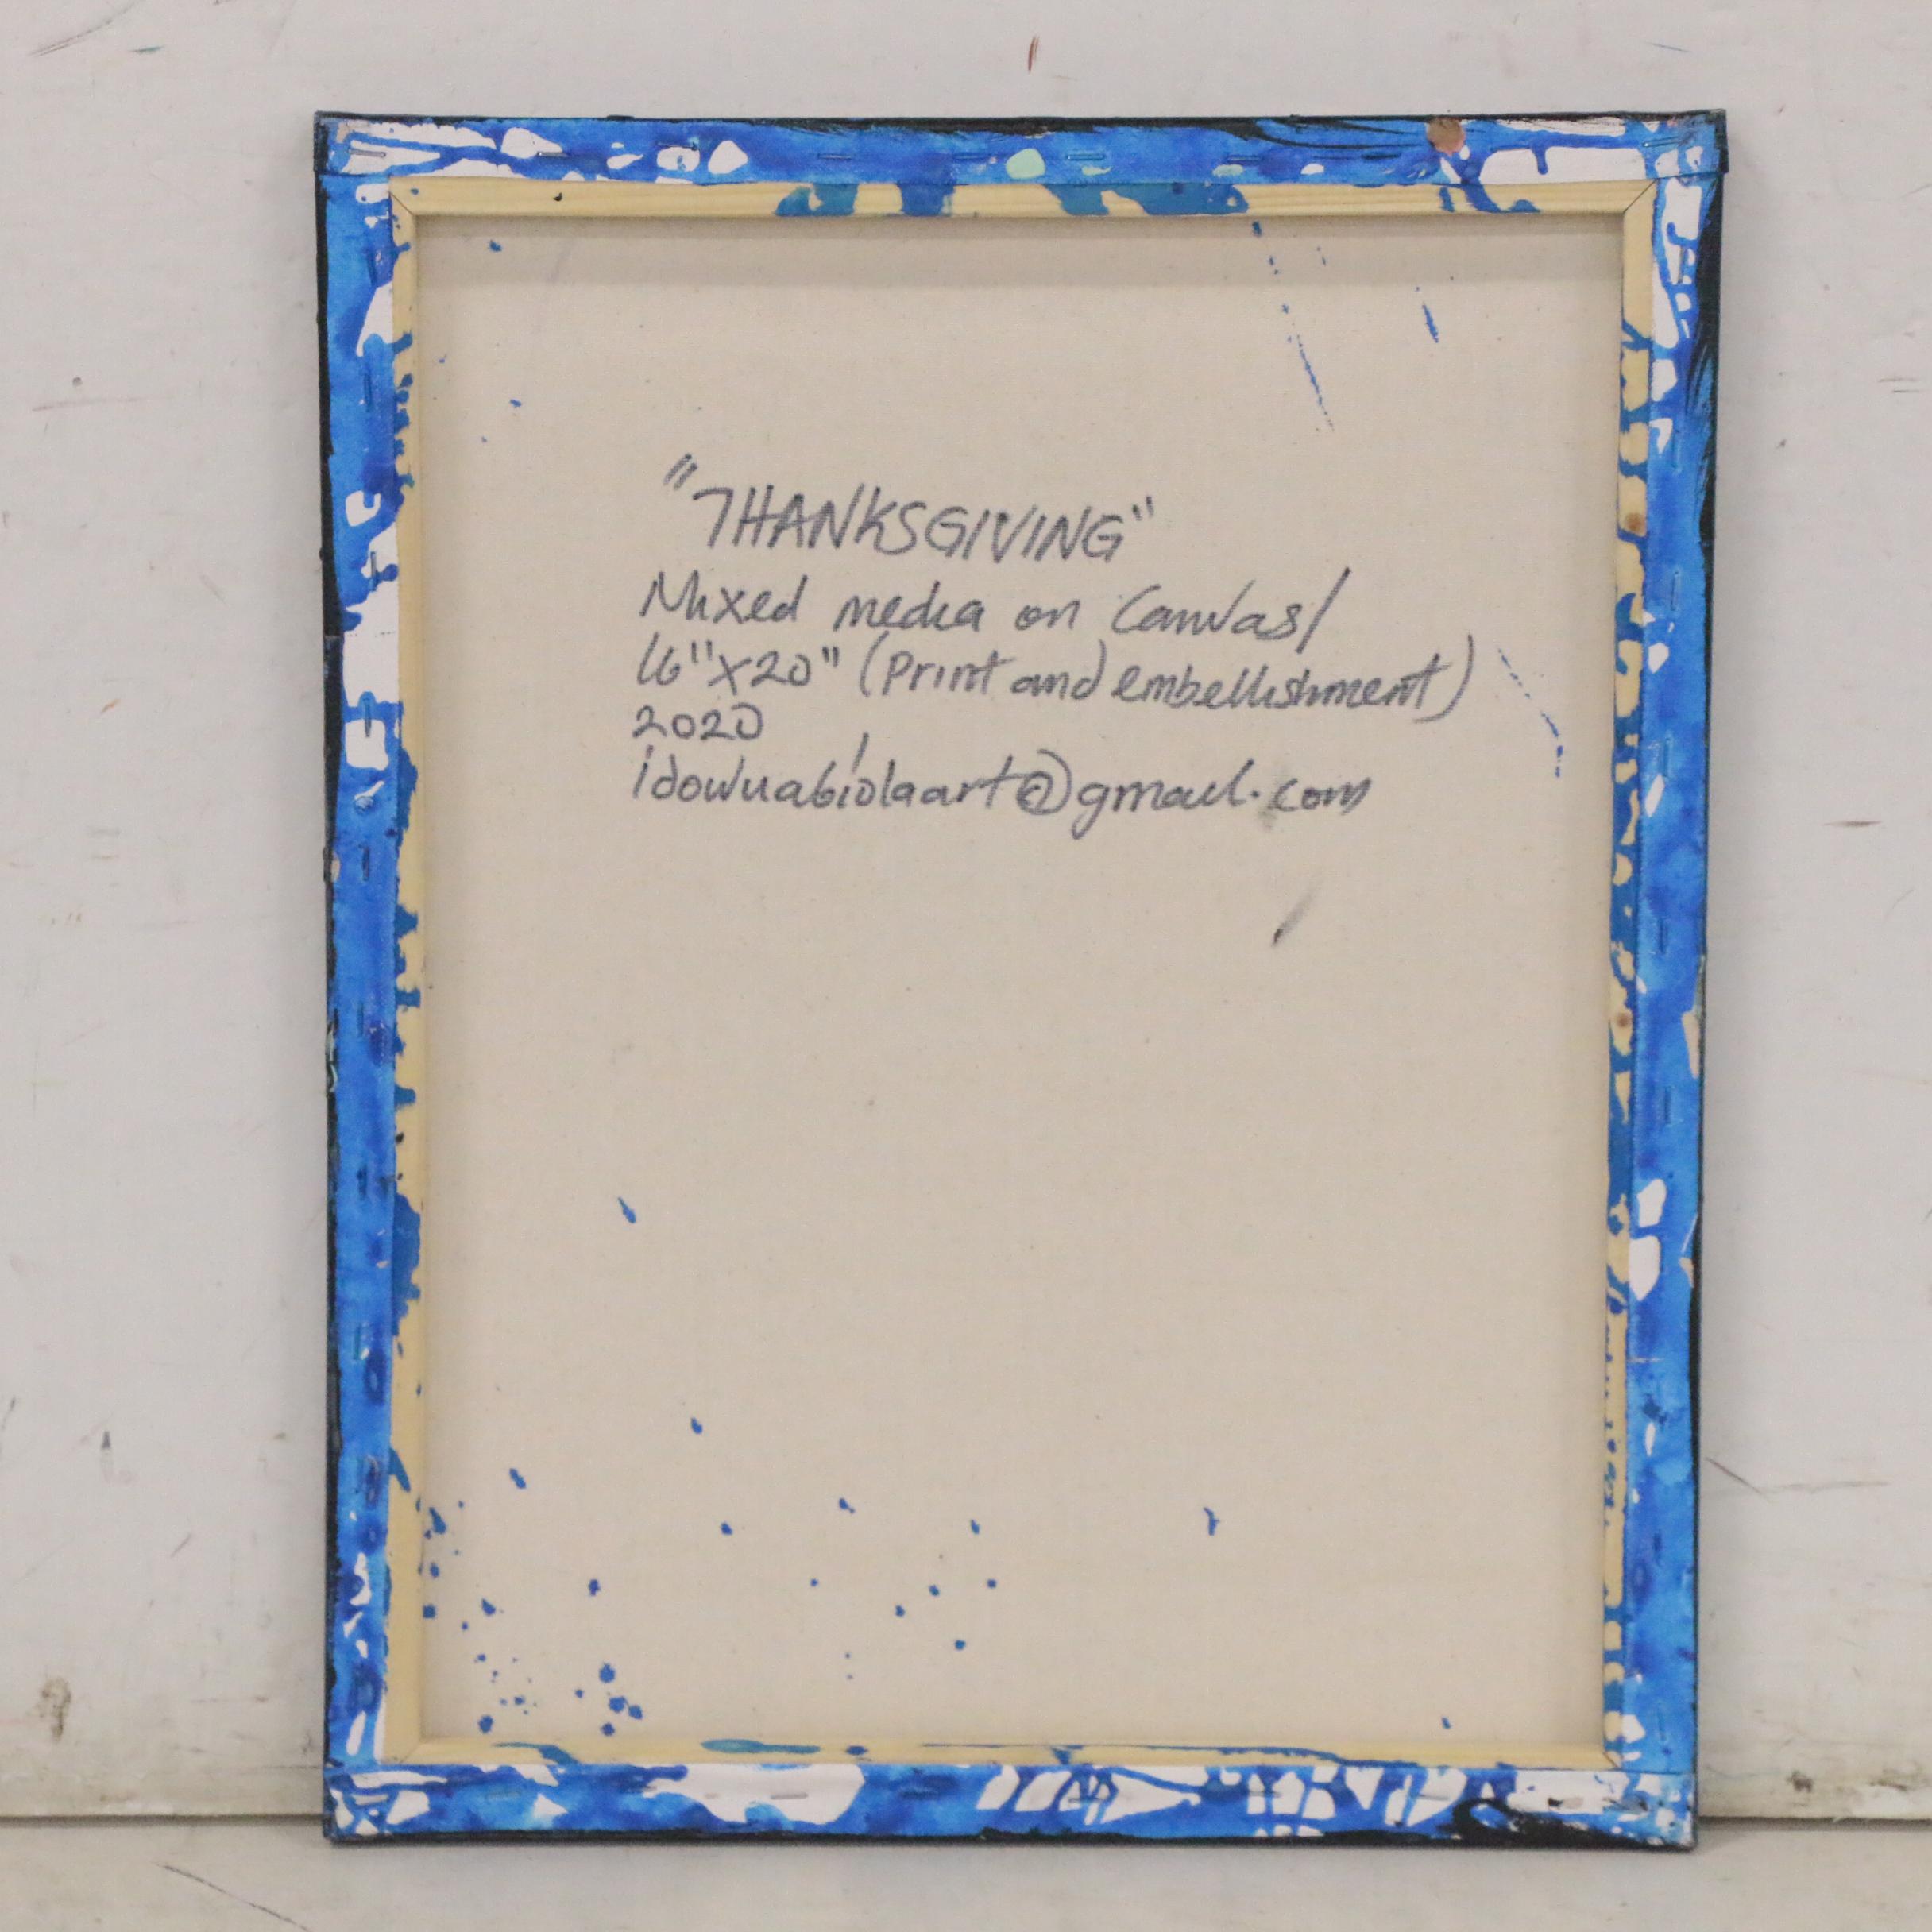 "THANKSGIVING"
Mixed media on Canvas/
16"X20" (Print and embellishment)
2020
idowuabiolaart@gmail.com